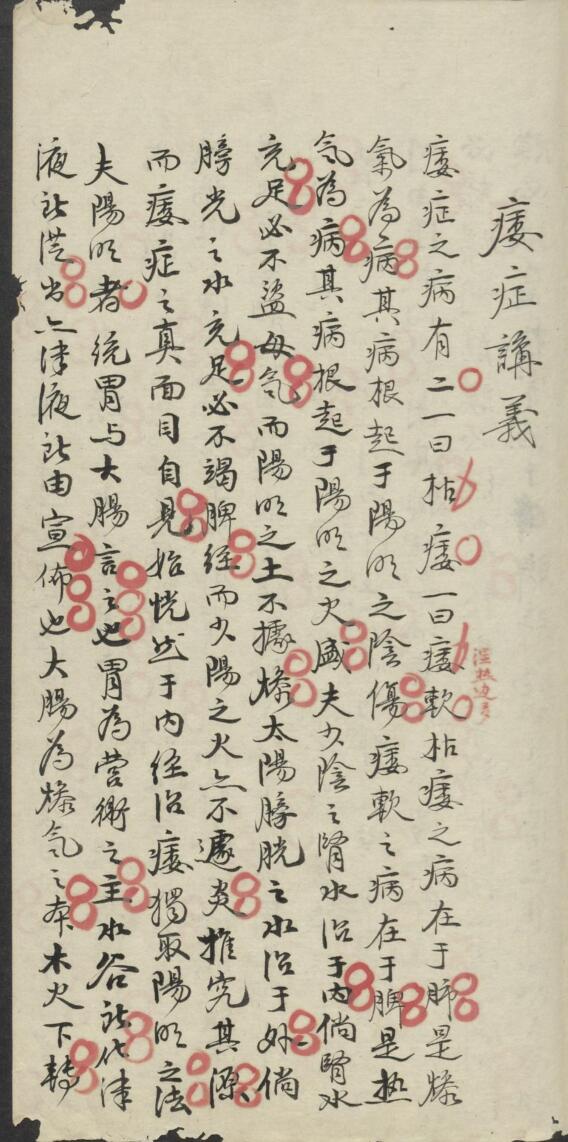 痿症講義
痿症之病有二一曰枯痿一曰痿軟枯痿之病在于肺是燥
湿热边多
氣為病其病根起于陽明之陰傷痿軟之病在于脾是热
气為病其病根起于陽明之火盛夫少陰之腎水治于内倘腎水
充足必不盜母气而陽明之土不攄燥太陽膀胱之水治于外倘
膀光之水充足必不竭脾經而少陽之火亦不遽炎推究其源
而痿症之真面目自見始恍然于内経治痿獨取陽明之法
夫陽明者統胃与大腸言之也胃為营衛之主水谷所化津
液所從出亦津液所由宣佈也大腸為燥气之本木火下轉